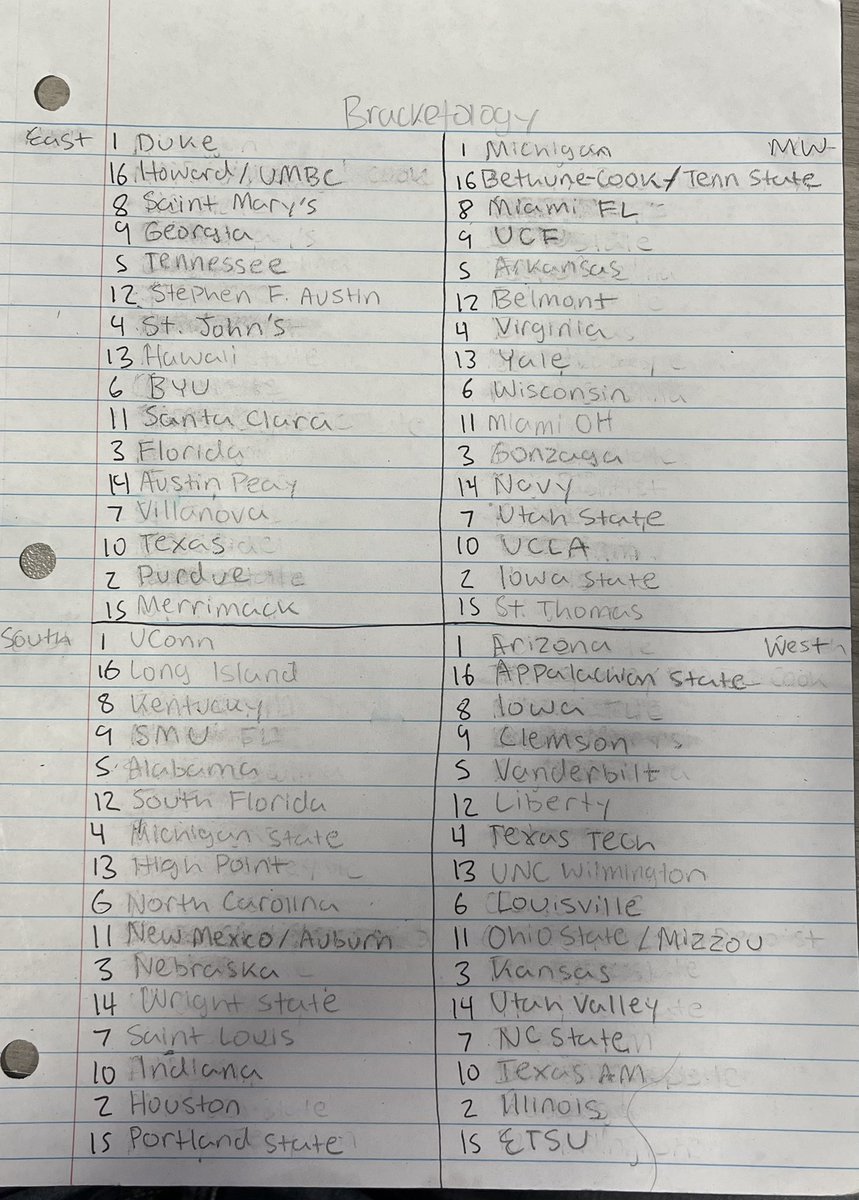 Bracketology
East 1 Duke
16 Howard/UMBC
8 Saint Mary's
9 Georgia
5 Tennessee
12 Stephen F. Austin
4 St. John's
13 Hawaii
6 BYU
11 Santa Clara
3 Florida
14 Austin Peay
7 Villanova
10 Texas
2 Purdue
15 Merrimack
1 Michigan MW
16 Bethune-Cook/Tenn State
8 Miami FL
9 UCF
5 Arkansas
12 Belmont
4 Virginia
13 Yale
6 Wisconsin
11 Miami OH
3 Gonzaga
14 Navy
7 Utah State
10 UCLA
2 Iowa State
15 St. Thomas
South 1 UConn
16 Long Island
8 Kentucky
9 SMU
5 Alabama
12 South Florida
4 Michigan State
13 High Point
6 North Carolina
11 New Mexico/Auburn
3 Nebraska
14 Wright State
7 Saint Louis
10 Indiana
2 Houston
15 Portland State
1 Arizona West
16 Appalachian State
8 Iowa
9 Clemson
5 Vanderbilt
12 Liberty
4 Texas Tech
13 UNC Wilmington
6 Louisville
11 Ohio State/Mizzou
3 Kansas
14 Utah Valley
7 NC State
10 Texas AM
2 Illinois
15 ETSU